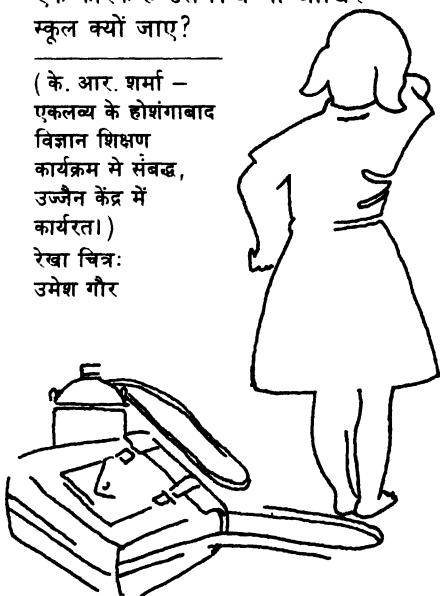 स्कूल क्यों जाए?
( के. आर. शर्मा –
एकलव्य के होशंगाबाद
विज्ञान शिक्षण
कार्यक्रम मे संबद्ध,
उज्जैन केंद्र में
कार्यरत। )
रेखा चित्रः
उमेश गौर